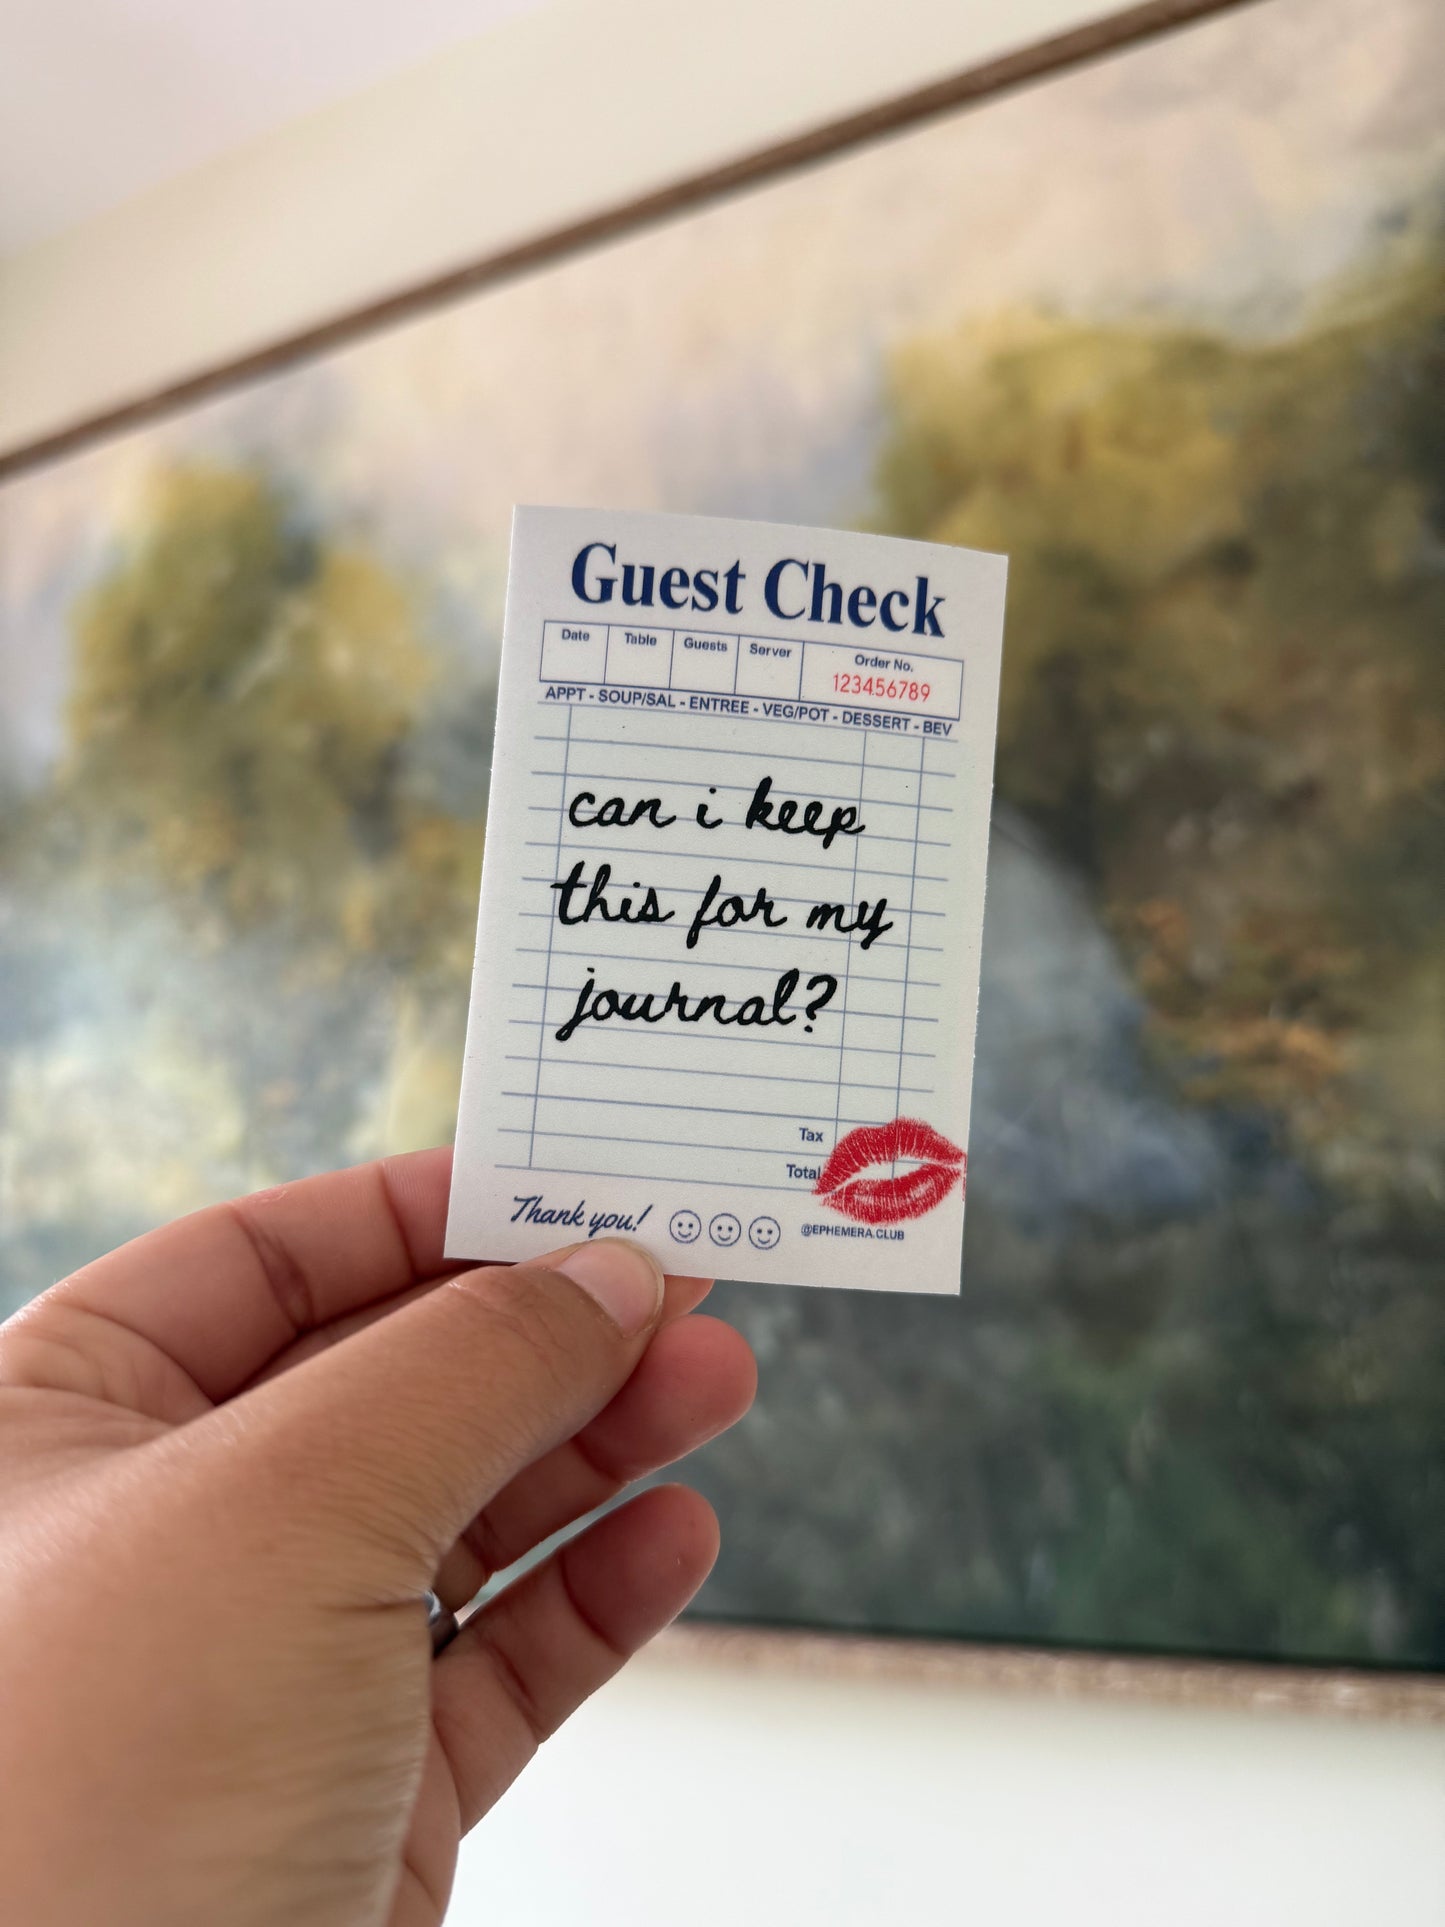 Guest Check
Date Table Guests Server Order No.
123456789
APPT - SOUP/SAL - ENTREE - VEG/POT - DESSERT - BEV
can i keep
this for my
journal?
Tax
Total
Thank you! @EPHEMERA.CLUB